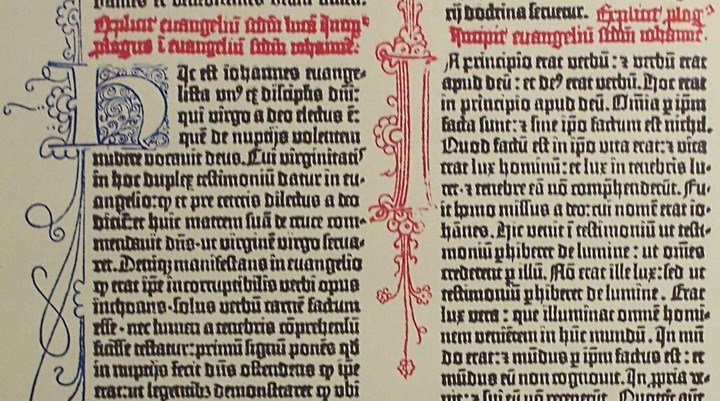 Explicit euangeliū scdm̄ lucā Incipit
plogus ī euangeliū scdm̄ iohannē.
Hic est iohannes euange-
lista vn⁹ ex disciplis dn̄i:
qui virgo a deo electus ē:
quē de nuptijs volentem
nubere vocauit deus. Cui virginitatis
in hoc duplex testimoniū datur in eu-
angelio: ꝙ et pre ceteris dilectus a deo
dicit̄ et huic matrem suā de cruce com-
mendauit dn̄s· ut virginē virgo serua-
ret. Deniq; manifestans in euangelio
ꝙ erat ip̄e incorruptibilis verbi opus
inchoans· solus verbū carnē factum
esse· nec lumen a tenebris cōprehensū
fuisse testatur: primū signū ponēs qd̄
in nuptijs fecit dn̄s ostendens ꝙ ip̄e
erat: ut legentibꝫ demonstraret ꝙ vbi
rij doctrina seruetur. Explicit plog⁹
Incipit euangeliū scdm̄ iohannē.
In principio erat verbū: ⁊ verbū erat
apud deū: et de⁹ erat verbū. Hoc erat
in principio apud deū. Omīa ꝑ ip̄m
facta sunt: ⁊ sine ip̄o factum est nichil.
Quod factū est in ip̄o vita erat: ⁊ vita
erat lux hominū: et lux in tenebris lu-
cet· ⁊ tenebre eā nō cōprehenderūt. Fu-
it homo missus a deo: cui nomē erat io-
hānes. Hic venit ī testimoniū ut testi-
moniū ꝑhiberet de lumine: ut om̄es
crederent ꝑ illū. Nō erat ille lux: sed ut
testimoniū ꝑhiberet de lumine. Erat
lux vera: que illuminat omnē homi-
nem venientem in hūc mundū. In mū-
do erat: ⁊ mūdus ꝑ ip̄m factus est: et
mūdus eū nō cognouit. In ꝓpria ve-
nit: ⁊ sui eū nō receperūt. Quotq̄t aūt